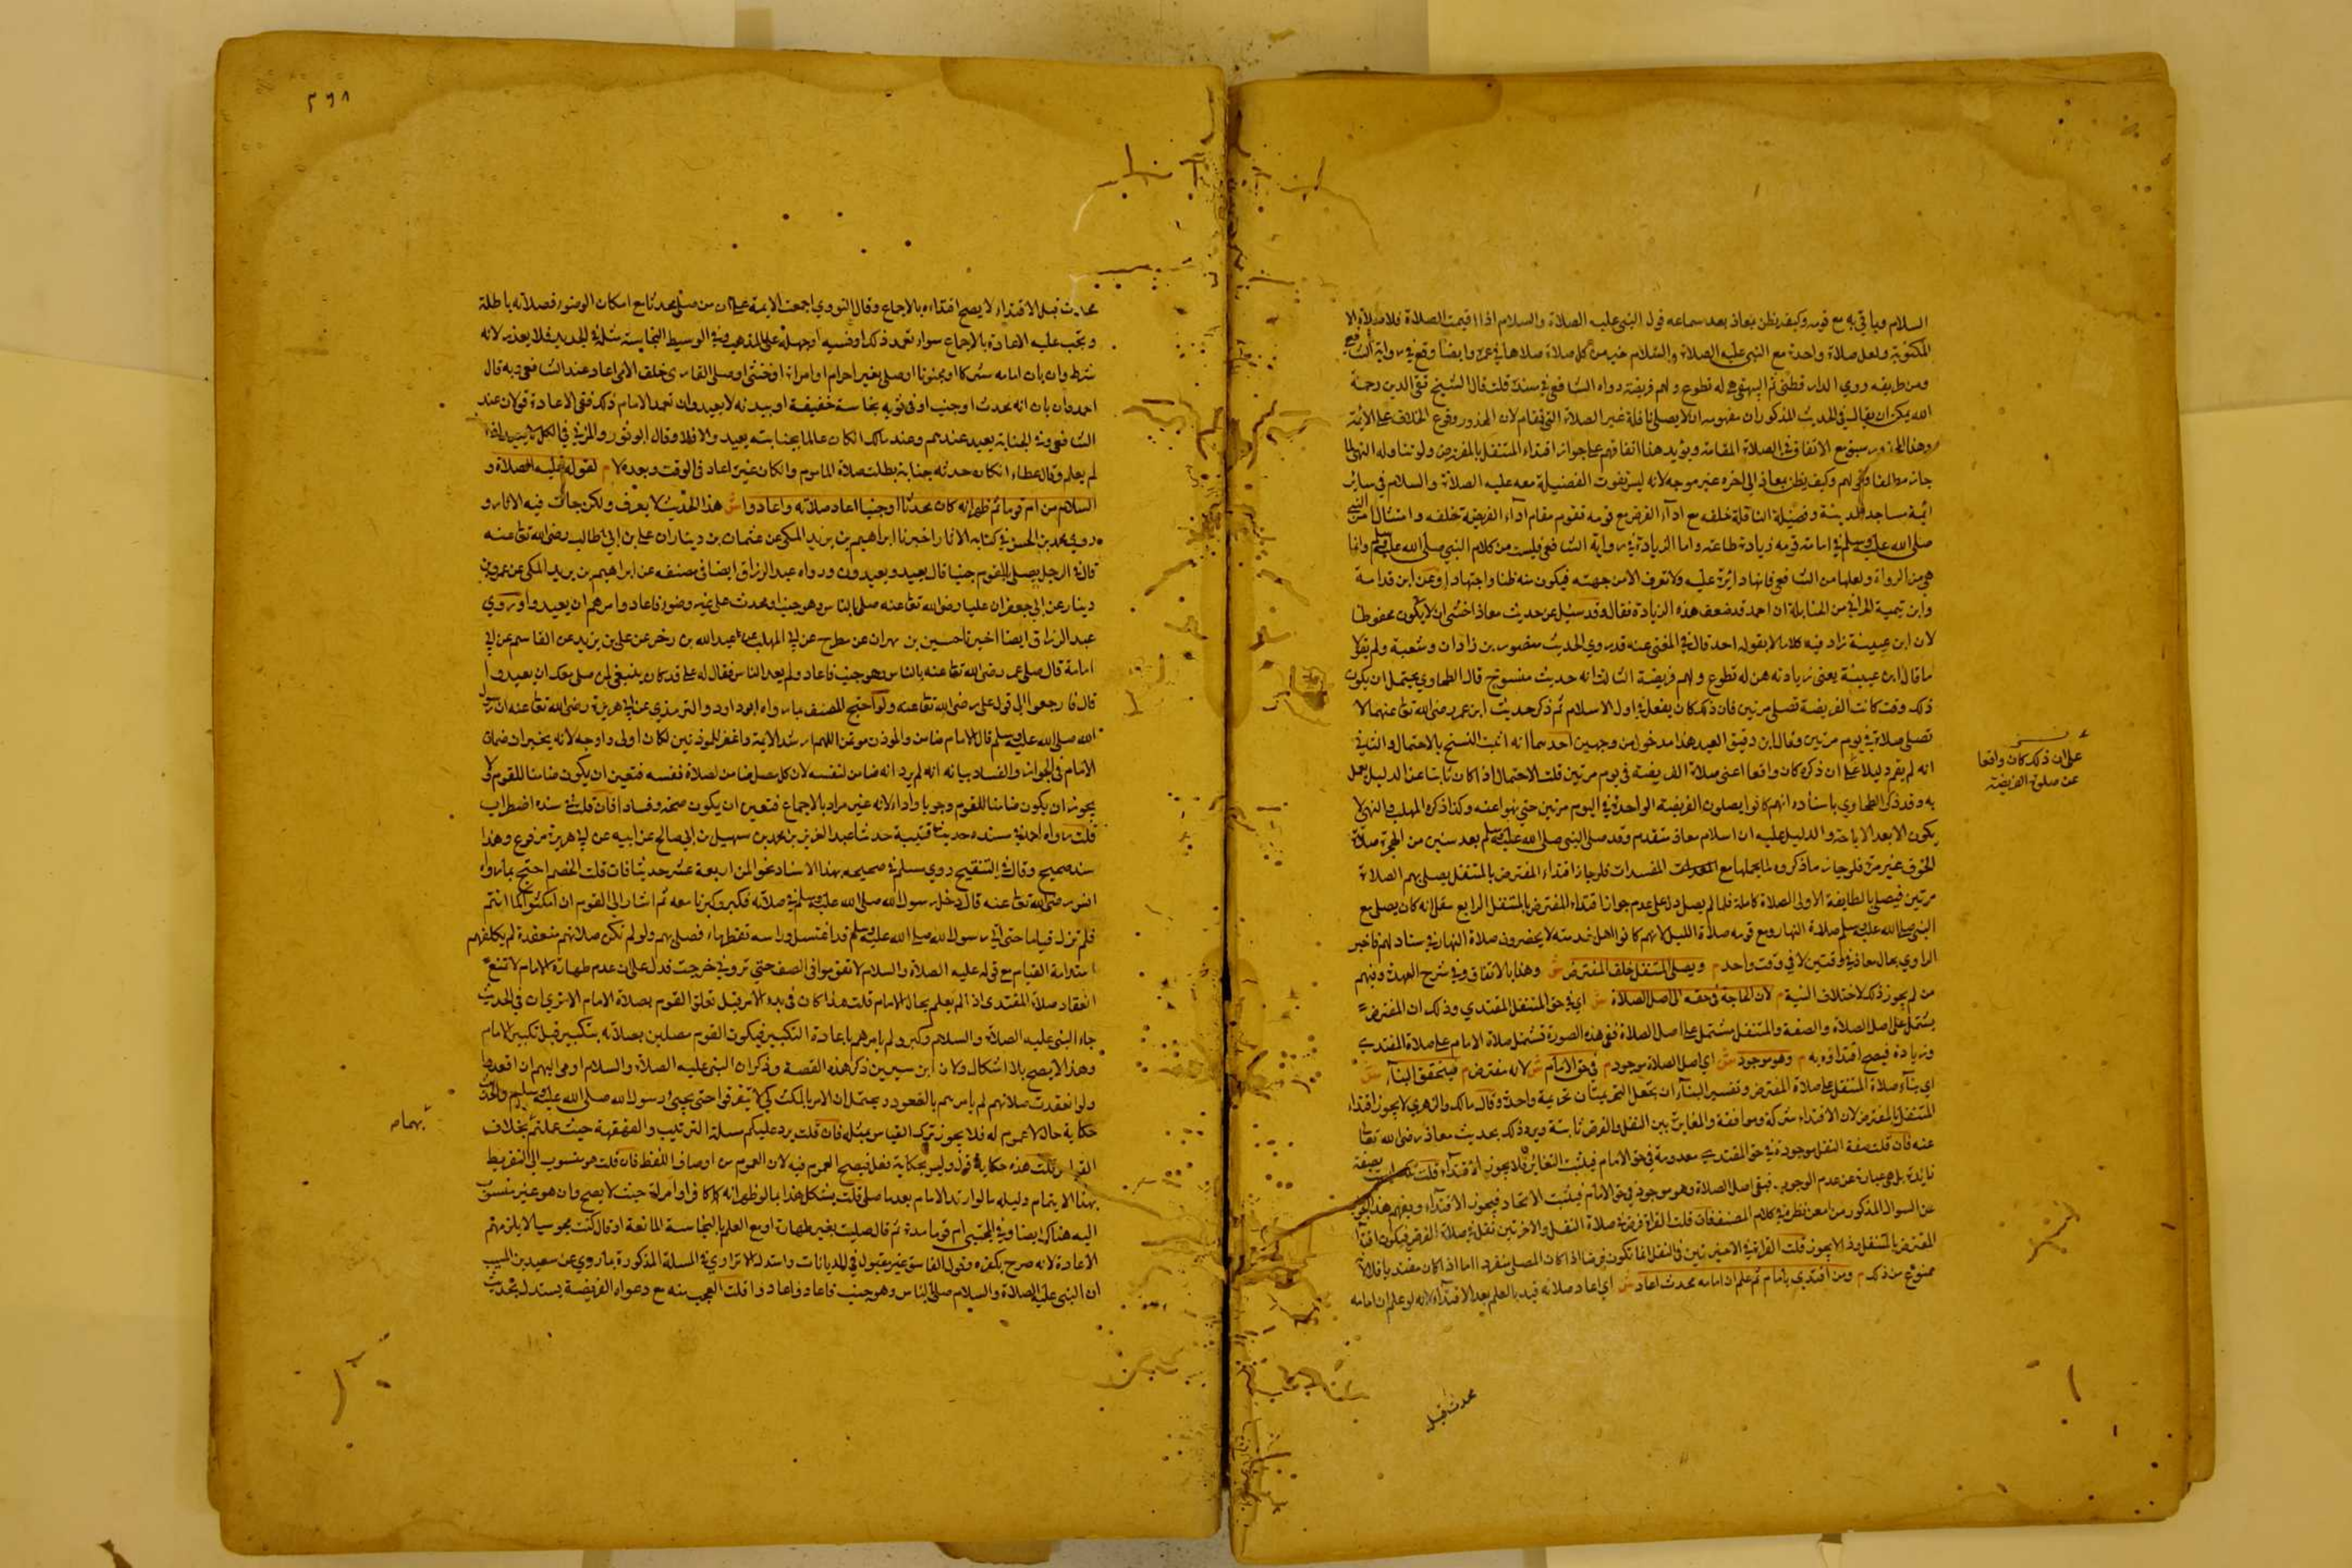 السلام وياتي به مع قومه وكيف يظن بمعاذ بعد سماعه قول النبي عليه الصلاة والسلام اذا اقيمت الصلاة فلا صلاة الا
المكتوبة ولعل صلاة واحدة مع النبي عليه الصلاة والسلام خير من كل صلاة صلاها في عمره وايضا وقع في رواية الشافعي
ومن طريقه روي الدارقطني ثم البيهقي هي له تطوع ولهم فريضة رواه الشافعي في سنده قلت قال الشيخ تقي الدين رحمة
الله يمكن ان يقال في الحديث المذكور ان مفهومه ان لا يصلي نافلة غير الصلاة التي تقام لان المحذور وقوع الخلاف على الائمة
وهذا المحذور منتف مع الاتفاق في الصلاة المقامة ويؤيد هذا اتفاقهم على جواز اقتداء المتنفل بالمفترض ولو تناوله النهي لما
جاز مطلقا وقولهم وكيف يظن بمعاذ الى اخره غير موجه لانه ليس تفوت الفضيلة معه عليه الصلاة والسلام في سائر
ائمة مساجد المدينة وفضيلة النافلة خلفه مع اداء الفرض مع قومه تقوم مقام اداء الفريضة خلفه وامتثال امر النبي
صلى الله عليه وسلم في امامة قومه زيادة طاعة واما الزيادة في رواية الشافعي فليست من كلام النبي صلى الله عليه وسلم وانما
هي من الرواة ولعلها من الشافعي فانها دائرة عليه ولا تعرف الا من جهته فيكون منه ظنا واجتهادا وعن ابن قدامة
وابن تيمية الحراني من الحنابلة ان احمد قد ضعف هذه الزيادة فقال وقد سئل عن حديث معاذ اخشى ان لا يكون محفوظا
لان ابن عيينة زاد فيه كلاما لا يقوله احد قال في المغني عنه قد روي الحديث منصور بن زاذان وشعبة ولم يقولا
ما قال ابن عيينة يعني زيادته هن له تطوع ولهم فريضة الثالث انه حديث منسوخ قال الطحاوي يحتمل ان يكون
ذلك وقت كانت الفريضة تصلى مرتين فان ذلك كان يفعل في اول الاسلام ثم ذكر حديث ابن عمر رضي الله تعالى عنهما لا
تصلى صلاة في يوم مرتين وقال ابن دقيق العيد هذا مدخول من وجهين احدهما انه اثبت النسخ بالاحتمال والثاني
انه لم يقم دليلا على ان ذكره كان واقعا اعني صلاة الفريضة في يوم مرتين قلت الاحتمال اذا كان ناشئا عن الدليل يعمل
به وقد ذكر الطحاوي باسناده انهم كانوا يصلون الفريضة الواحدة في اليوم مرتين حتى نهوا عنه وكذا ذكره المهلب والنهي لا
يكون الا بعد الاباحة والدليل عليه ان اسلام معاذ متقدم وقد صلى النبي صلى الله عليه وسلم بعد سنين من الهجرة صلاة
الخوف غير مرة فلو جاز ما ذكروه لما يحملها مع المفسدات فلو جاز اقتداء المفترض بالمتنفل يصلي بهم الصلاة
مرتين فيصلي بالطايفة الاولى الصلاة كاملة فلما لم يصل دل على عدم جواز اقتداء المفترض بالمتنفل الرابع سلمنا انه كان يصلي مع
النبي صلى الله عليه وسلم صلاة النهار ومع قومه صلاة الليل لانهم كانوا اهل خدمته لا يحضرون صلاة النهار في منازلهم فاخبر
الراوي بحال معاذ في وقتين لا في وقت واحد م ويصلي المتنفل خلف المفترض ش وهذا بالاتفاق وفي شرح العهدة ومنهم
من لم يجوز ذلك لاختلاف النية م لان الحاجة في حقه الى اصل الصلاة ش اي في حق المتنفل المقتدي وذلك ان المفترض
يشتمل على اصل الصلاة والصفة والمتنفل مشتمل على اصل الصلاة ففي هذه الصورة تشتمل صلاة الامام على صلاة المقتدي
وزيادة فيصح اقتداؤه به م وهو موجود ش اي اصل الصلاة موجود م في حق الامام ش لانه مفترض م فيتحقق البناء ش
اي بناء صلاة المتنفل على صلاة المفترض وتفسير البناء ان يجعل التحريمتان تحريمة واحدة وقال مالك والزهري لا يجوز اقتداء
المتنفل بالمفترض لان الاقتداء شركة وموافقة والمغايرة بين النفل والفرض ثابتة ويرد ذلك بحديث معاذ رضي الله تعالى
عنه فان قلت صفة النفل موجودة في حق المقتدي معدومة في حق الامام فيثبت التغاير فلا يجوز الاقتداء قلت بصفة
زايدة بل هي عبارة عن عدم الوجوب فبقي اصل الصلاة وهو موجود في حق الامام فيثبت الاتحاد فيجوز الاقتداء ويفهم هذا
عن السوال المذكور من امعن نظره في كلام المصنف فان قلت القراءة فرض في صلاة النفل والاخرتين نفل في صلاة الفرض فيكون اقتداء
المفترض بالمتنفل وذا لا يجوز قلت القراءة في الاخيرتين في النفل انما تكون فرضا اذا كان المصلي منفردا اما اذا كان مقتديا فلا لانه
ممنوع من ذلك م ومن اقتدي بامام ثم علم ان امامه محدث اعاد ش اي اعاد صلاته قيد بالعلم بعد الاقتداء لانه لو علم ان امامه
على ان ذلك كان واقعا
عن صلوة الفريضة
محدث قبل
٢٩٨
محدث قبل الاقتداء لا يصح اقتداءه بالاجماع وقال النووي اجمعت الايمة على ان من صلى محدثا مع امكان الوضوء فصلاته باطلة
وتجب عليه الاعادة بالاجماع سواء تعمد ذلك او نسيه او جهله على المذهب وفي الوسيط النجاسة مثله في الجديد فلا يعذر لانه
شرط وان بان امامه مشركا او مجنونا او صلى بغير احرام او امراة او خنثى او صلى القارئ خلف الامي اعاد عند الشافعي وبه قال
احمد وان بان انه محدث او جنب او في ثوبه نجاسة خفيفة او ببدنه لا يعيد وان تعمد الامام ذلك ففي الاعادة قولان عند
الشافعي وفي الجنابة يعيد عندهم وعند مالك ان كان عالما بجنابته يعيد والا فلا وقال ابو ثور والمزني في الكل لا يعيد اذا
لم يعلم وقال عطاء ان كان حدثه جنابة بطلت صلاة الماموم وان كان غيره اعاد في الوقت وبعده لا م لقوله عليه الصلاة و
السلام من ام قوما ثم ظهر انه كان محدثا او جنبا اعاد صلاته واعادوا ش هذا الحديث لا يعرف ولكن جات فيه الاثار و
روي محمد بن الحسن في كتابه الاثار اخبرنا ابراهيم بن يزيد المكي عن عثمان بن دينار ان علي بن ابي طالب رضي الله تعالى عنه
قال في الرجل يصلي بالقوم جنبا قال يعيد ويعيدون ورواه عبد الرزاق ايضا في مصنفه عن ابراهيم بن يزيد المكي عن عمرو بن
دينار عن ابي جعفر ان عليا رضي الله تعالى عنه صلى بالناس وهو جنب او محدث على غير وضوء فاعاد وامرهم ان يعيدوا وروي
عبد الرزاق ايضا اخبرنا حسين بن مهران عن مطرح عن ابي المهلب عن عبيد الله بن زحر عن علي بن يزيد عن القاسم عن ابي
امامة قال صلى عمر رضي الله تعالى عنه بالناس وهو جنب فاعاد ولم يعد الناس فقال له علي قد كان ينبغي لمن صلى معك ان يعيدوا
قال فارجعوا الى قول علي رضي الله تعالى عنه ولو احتج المصنف بما رواه ابو داود والترمذي عن ابي هريرة رضي الله تعالى عنه ان رسول
الله صلى الله عليه وسلم قال الامام ضامن والموذن موتمن اللهم ارشد الايمة واغفر للموذنين لكان اولى واوجه لانه يخبر ان ضمان
الامام في الجواز والفساد بيانه انه لم يرد انه ضامن لنفسه لان كل مصل ضامن لصلاة نفسه فتعين ان يكون ضامنا للقوم ولا
يجوز ان يكون ضامنا للقوم وجوبا واداء لانه غير مراد بالاجماع فتعين ان يكون صحة وفسادا فان قلت في سنده اضطراب
قلت رواه احمد في مسنده حديثا قتيبة حدثنا عبد العزيز بن محمد بن سهيل بن ابي صالح عن ابيه عن ابي هريرة مرفوع وهذا
سند صحيح وقال في التنقيح روي مسلم في صحيحه بهذا الاسناد نحوا من اربعة عشر حديثا فان قلت الخصم احتج بما رواه
انس رضي الله تعالى عنه قال دخل رسول الله صلى الله عليه وسلم في صلاته فكبر وكبرنا معه ثم اشار الى القوم ان امكثوا كما انتم
فلم نزل قياما حتى اتى رسول الله صلى الله عليه وسلم قد اغتسل وراسه تقطر ماء فصلى بهم ولو لم تكن صلاتهم منعقدة لم يكلفهم
استدامة القيام مع قوله عليه الصلاة والسلام لا تقوموا في الصف حتى تروني خرجت فدل على ان عدم طهارة الامام لا تمنع
انعقاد صلاة المقتدي اذا لم يعلم بحال الامام قلت هذا كان في بدء الامر قبل تعلق القوم بصلاة الامام الا تري ان في الحديث
جاء النبي عليه الصلاة والسلام وكبر ولم يامرهم باعادة التكبير فيكون القوم مصلين بصلاته بتكبير قبل تكبير الامام
وهذا لا يصح بلا اشكال ولان ابن سيرين ذكر هذه القصة وذكر ان النبي عليه الصلاة والسلام اومى اليهم ان اقعدوا
ولو انعقدت صلاتهم لم يامرهم بالقعود ويحتمل ان الامر بالمكث كي لا يتفرقوا حتى يجيئ رسول الله صلى الله عليه وسلم والحديث
حكاية حال لا عموم له فلا يجوز ترك القياس بمثله فان قلت يرد عليكم مسئلة الترتيب والقهقهة حيث عملتم بخلاف
القياس قلت هذه حكاية قول وليس بحكاية فعل فيصح العموم فيه لان العموم من اوصاف اللفظ فان قلت هو منسوب الى التفريط
بهذا الايتمام ودليله ما لو ارتد الامام بعد ما صلى قلت يشكل هذا بما لو ظهر انه كان كافرا او امراة حيث لا يصح وان هو غير منسوب
اليه هناك ايضا وفي المجتبى ام قوما مدة ثم قال صليت بغير طهارة او مع العلم بالنجاسة المانعة او قال كنت مجوسيا لا يلزمهم
الاعادة لانه صرح بكفره وقول الفاسق غير مقبول في الديانات واستدل الاترازي في المسلة المذكورة بما روي عن سعيد بن المسيب
ان النبي عليه الصلاة والسلام صلى بالناس وهو جنب فاعاد واعادوا قلت العجب منه مع دعواه الفريضة يستدل بحديث